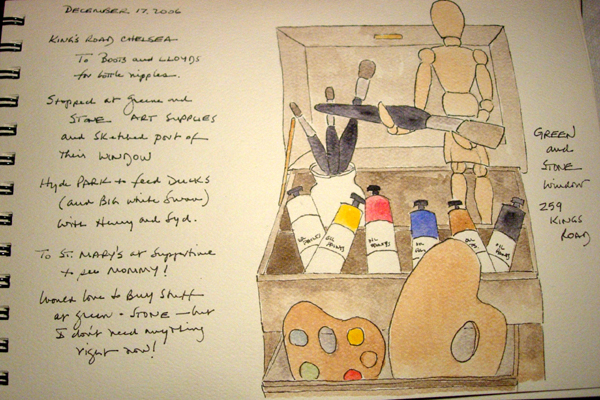 DECEMBER 17, 2006
KING'S ROAD CHELSEA
To BOOTS and LLOYDS
for bottle nipples.
Stopped at Greene and
STONE ART SUPPLIES
and sketched part of
their WINDOW
Hyde PARK to feed DUCKS
(and BIG white Swan)
with Henry and Syd.
To ST. MARY'S at suppertime
to see MOMMY!
Would love to Buy Stuff
at green + STONE — but
I don't need anything
right now!
GREEN
and
STONE
Window
259
KINGS
ROAD